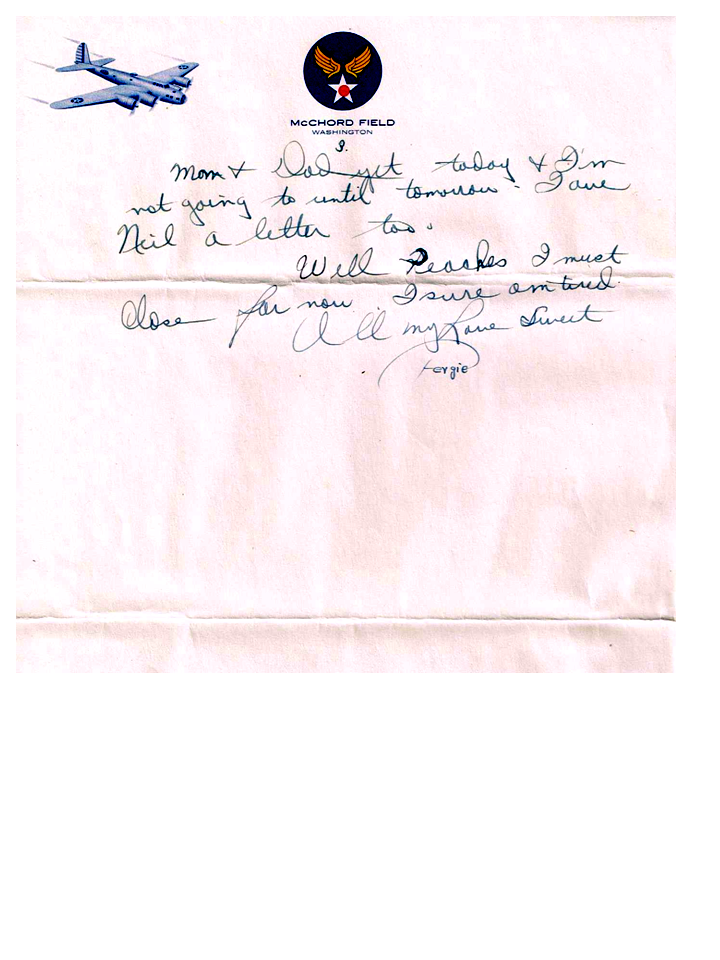 McCHORD FIELD
WASHINGTON
9.
Mom & Dad yet today & I'm
not going to until tomorrow. I owe
Neil a letter too.
Well Peaches I must
close for now I sure am tired
All my Love Sweet
Fergie